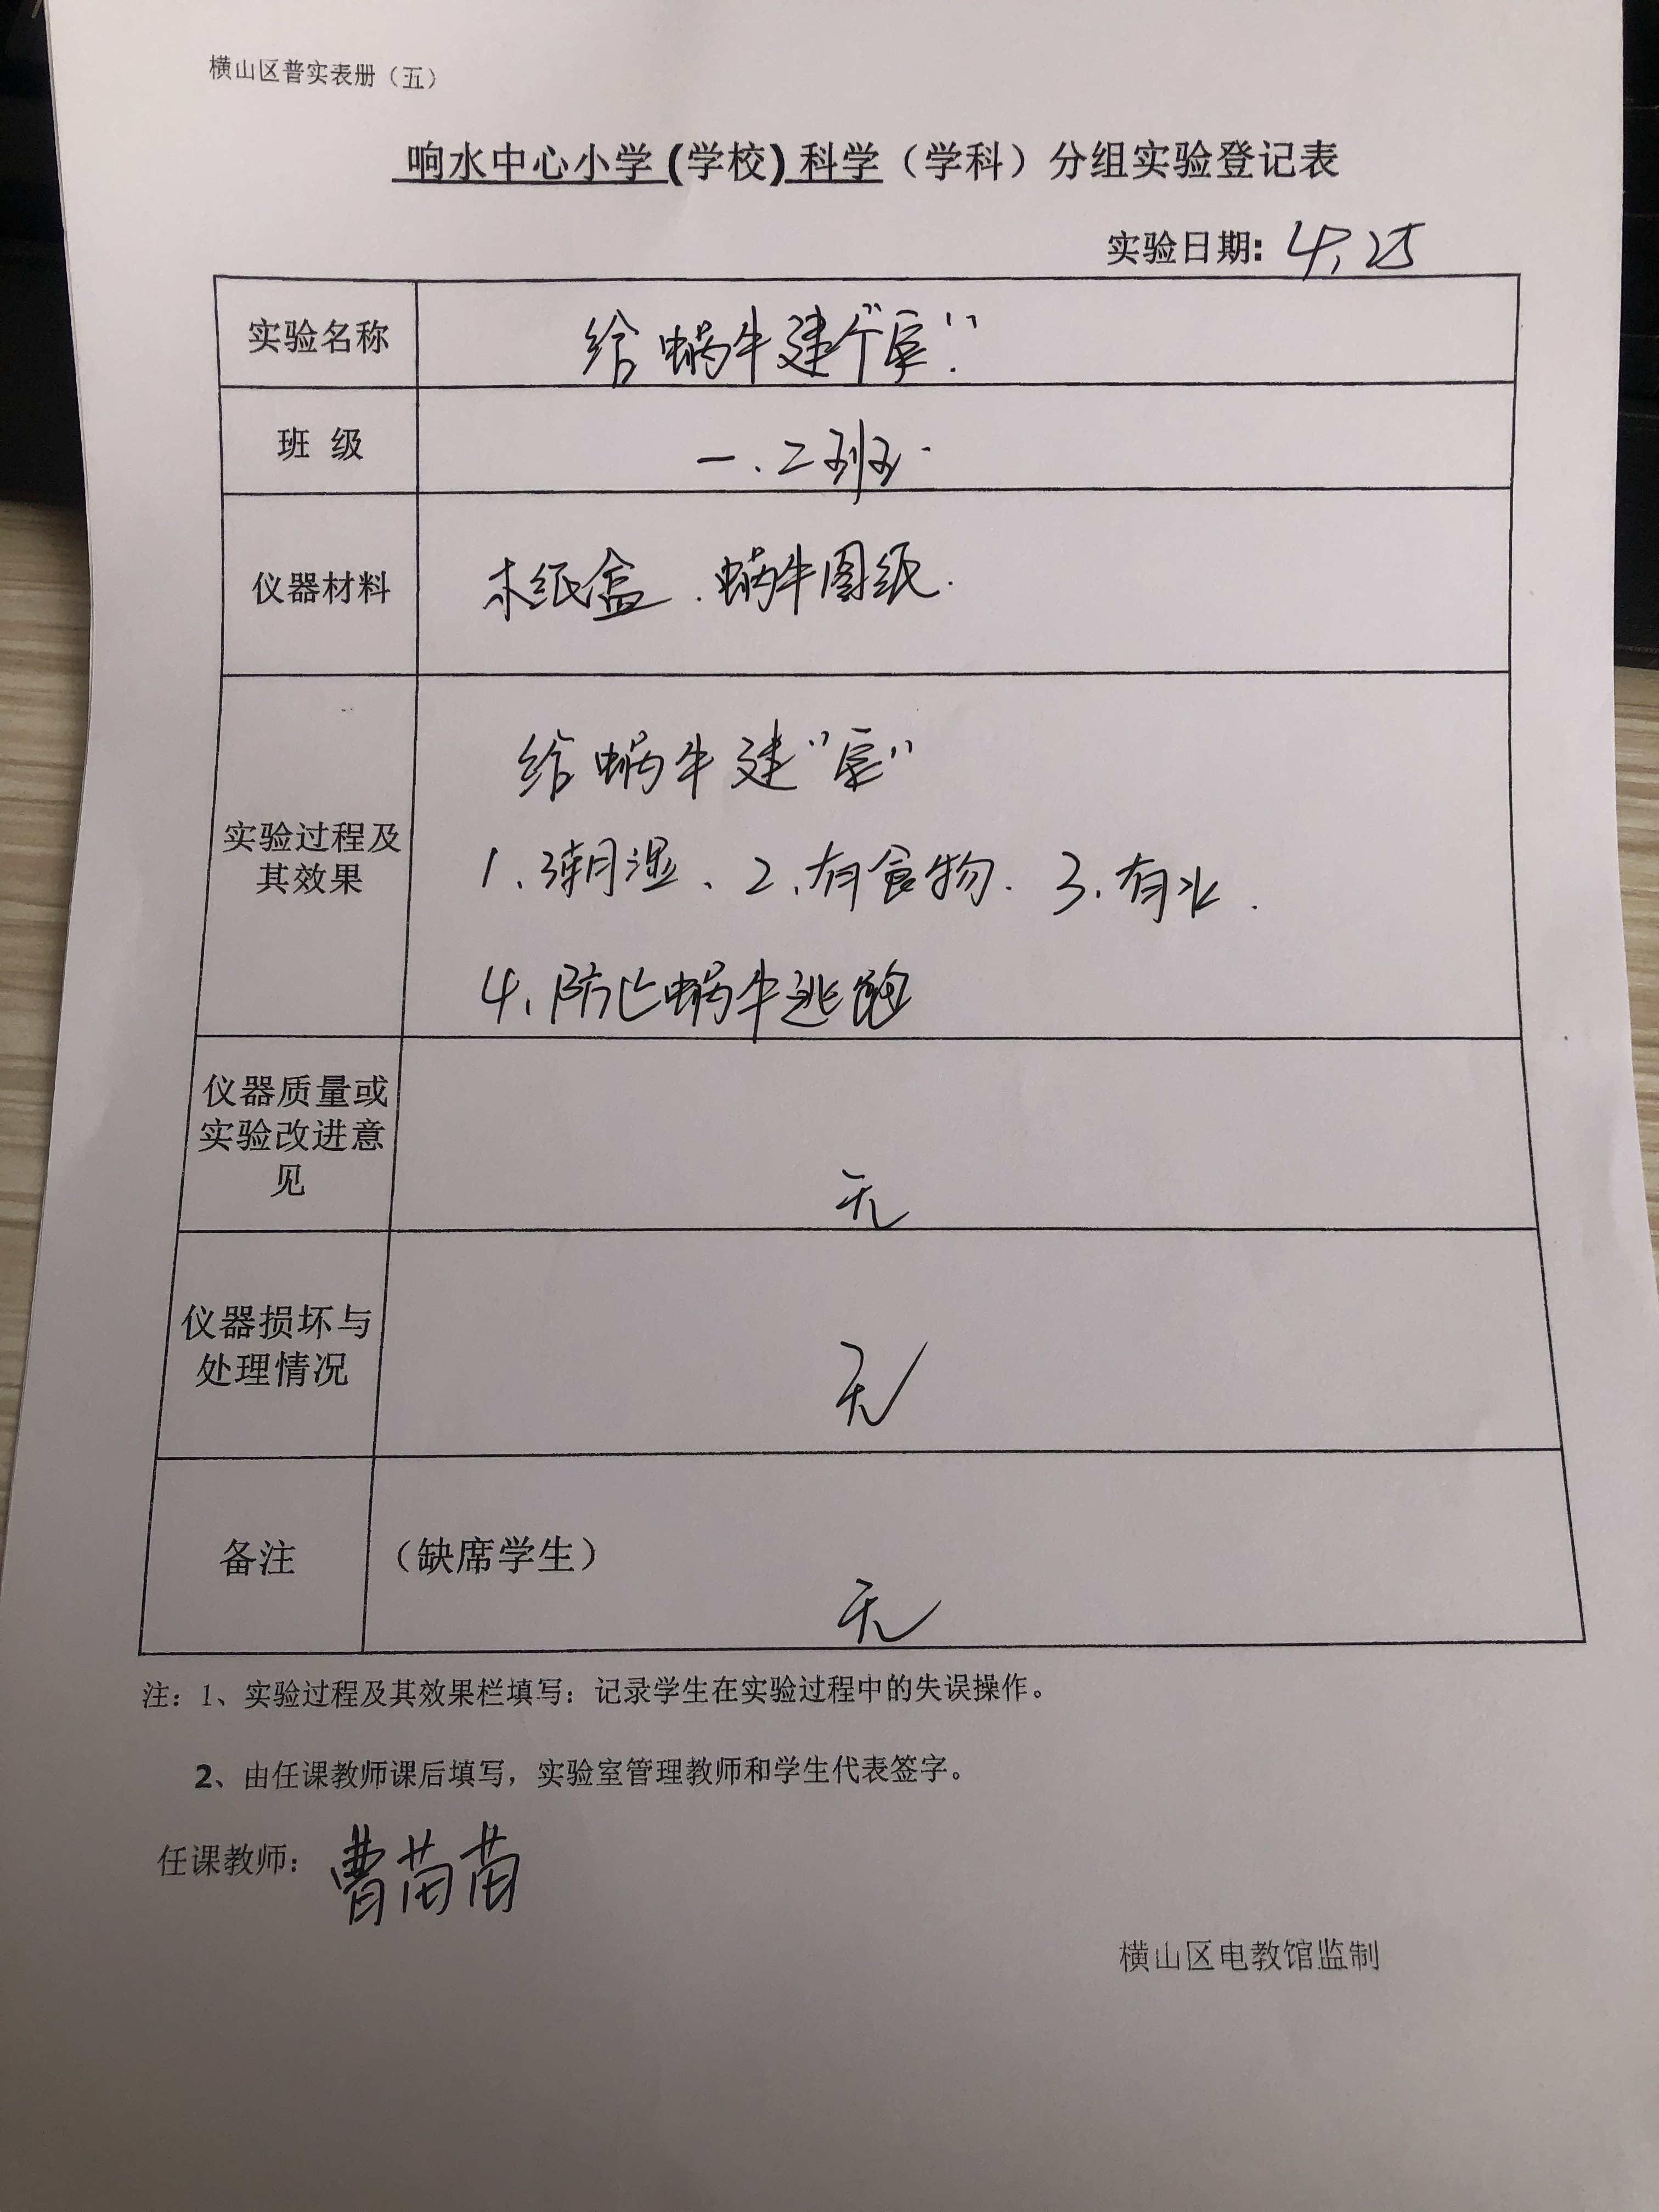 横山区普实表册（五）
响水中心小学(学校)科学（学科）分组实验登记表
实验日期: 4.25
实验名称 给蜗牛建个"家".
班 级 一.二班.
仪器材料 木纸盒.蜗牛图纸.
实验过程及其效果
给蜗牛建"家"
1、潮湿、2、有食物. 3、有水.
4、防止蜗牛逃跑
仪器质量或
实验改进意
见 无
仪器损坏与
处理情况 无
备注 （缺席学生）
无
注：1、实验过程及其效果栏填写：记录学生在实验过程中的失误操作。
2、由任课教师课后填写，实验室管理教师和学生代表签字。
任课教师：曹苗苗
横山区电教馆监制